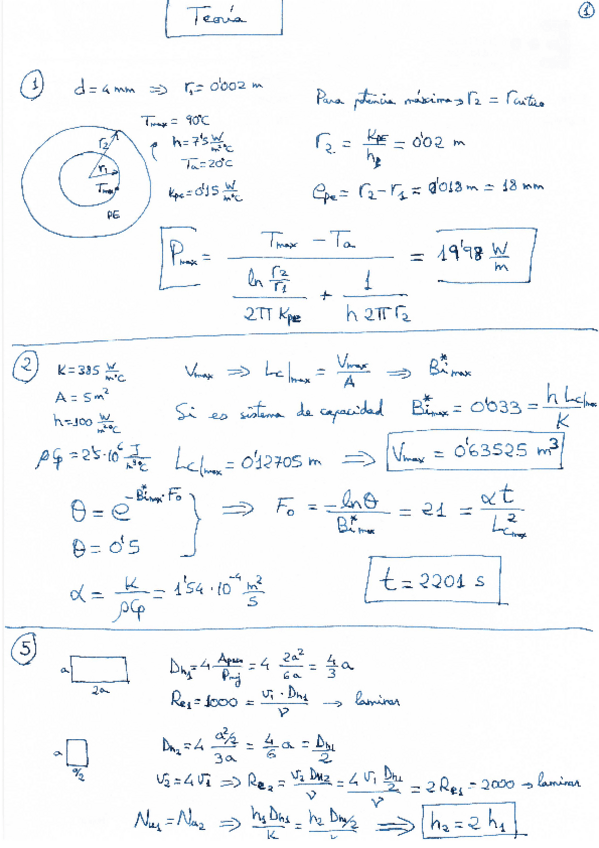 Teoría
①
① d = 4 mm ⇒ r₁ = 0'002 m
Para potencia máxima → r₂ = r crítico
T_max = 90°C
h = 7'5 W/m²°C
Ta = 20°C
K_PE = 0'15 W/m°C
r₂
r₁
T_max
PE
r₂ = K_PE/h = 0'02 m
e_PE = r₂ - r₁ = 0'018 m = 18 mm
P_max = (T_max - Ta) / (ln(r₂/r₁)/(2π K_PE) + 1/(h 2π r₂)) = 19'98 W/m
② K = 385 W/m°C
A = 5 m²
h = 100 W/m²°C
ρCp = 2'5·10⁶ J/m³°C
V_max ⇒ Lc|max = V_max/A ⇒ Bi*_max
Si es sistema de capacidad Bi*_max = 0'033 = h Lc|max/K
Lc|max = 0'12705 m ⇒ V_max = 0'63525 m³
θ = e^(-Bi*_max·Fo)
θ = 0'5
⇒ Fo = -lnθ/Bi*_max = 21 = αt/Lc²_max
α = K/ρCp = 1'54·10⁻⁴ m²/s
t = 2201 s
⑤
a
2a
Dh₁ = 4 Apaso/Pmj = 4 2a²/6a = 4/3 a
Re₁ = 1000 = v₁·Dh₁/ν → laminar
a
a/2
Dh₂ = 4 (a²/2)/3a = 4/6 a = Dh₁/2
v₂ = 4v₁ ⇒ Re₂ = v₂ Dh₂/ν = 4v₁ (Dh₁/2)/ν = 2 Re₁ = 2000 → laminar
Nu₁ = Nu₂ ⇒ h₁ Dh₁/K = h₂ Dh₁/2/K ⇒ h₂ = 2 h₁